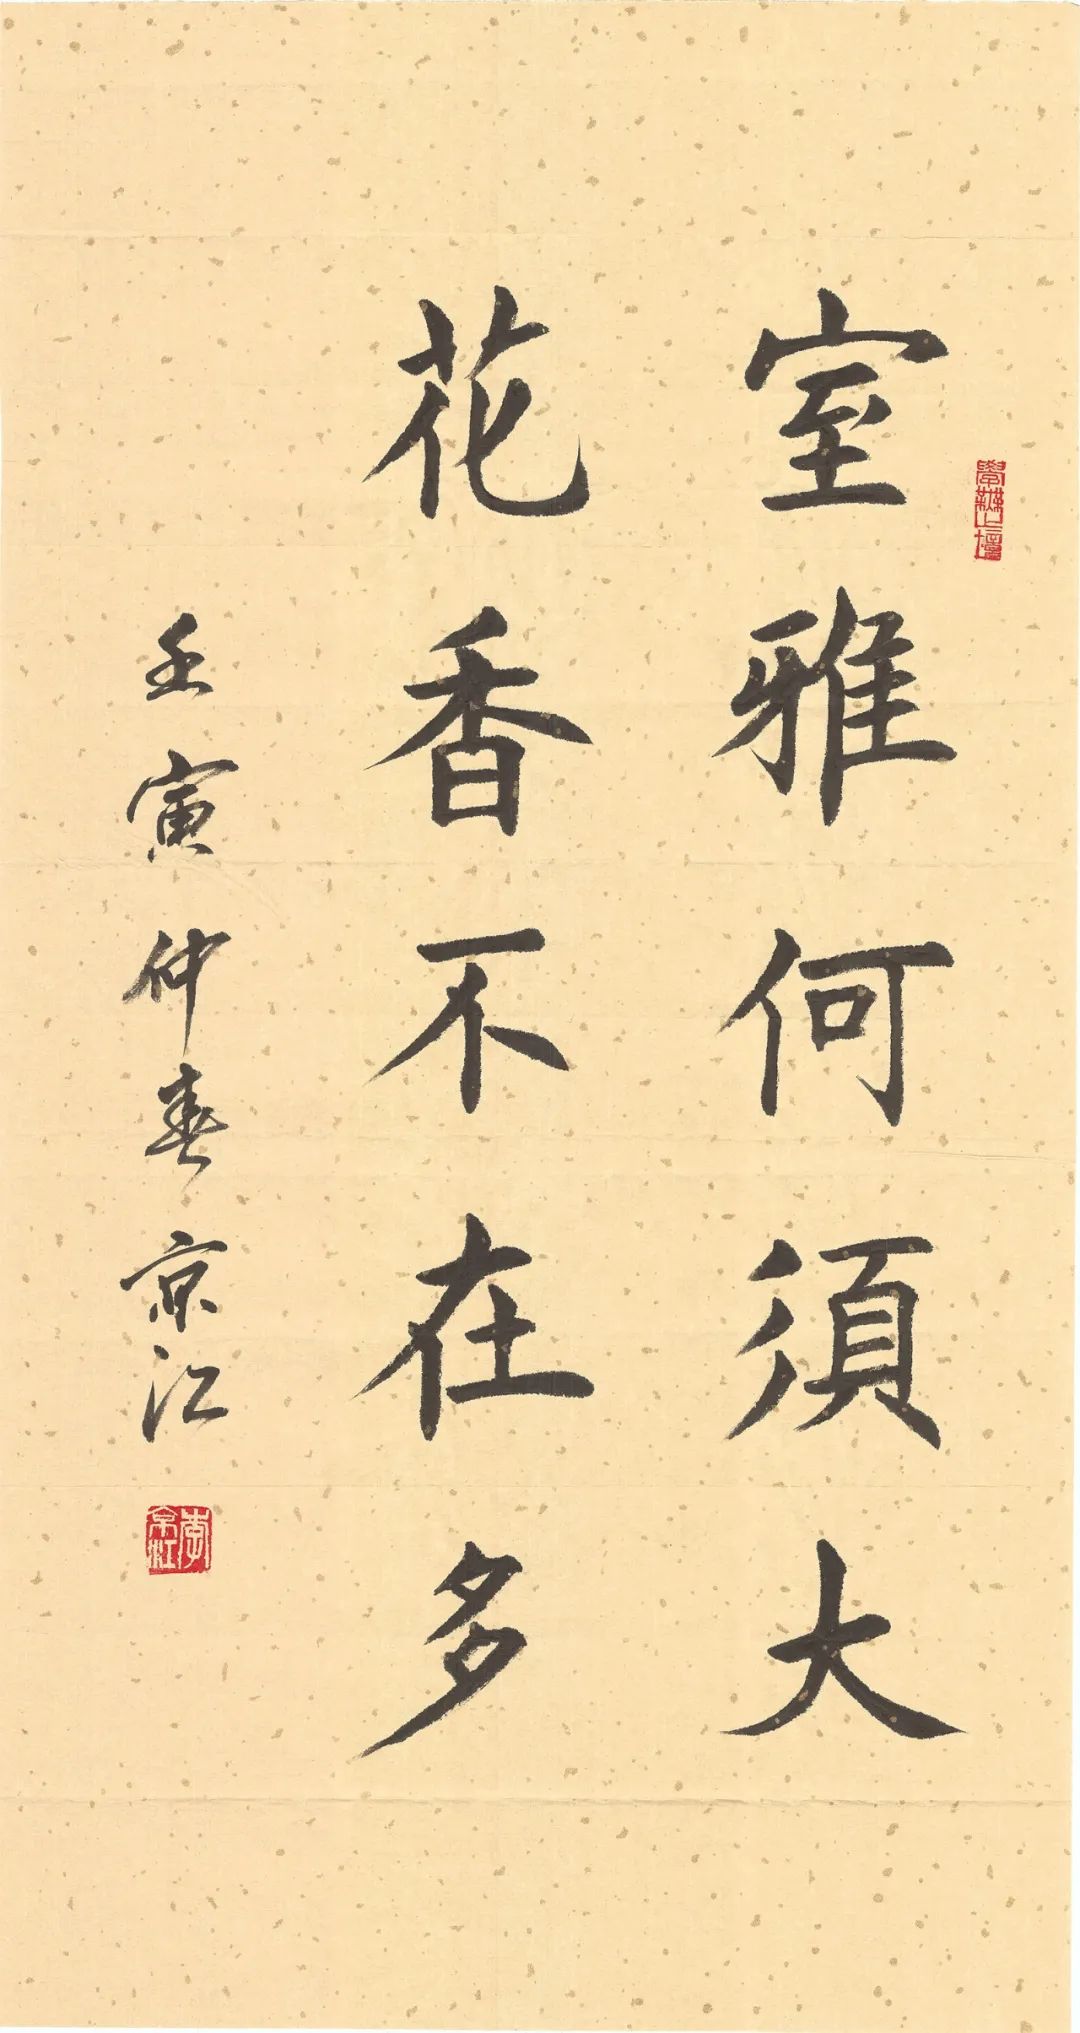 室雅何須大
花香不在多
壬寅仲春京江
李京江